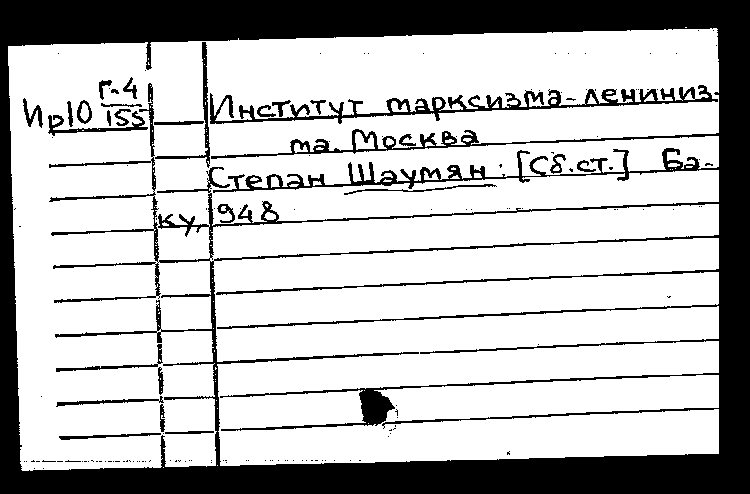 Ир10 г-4/155 Институт марксизма-лениниз-
ма. Москва
Степан Шаумян: [Сб.ст.] Ба-
ку, 948